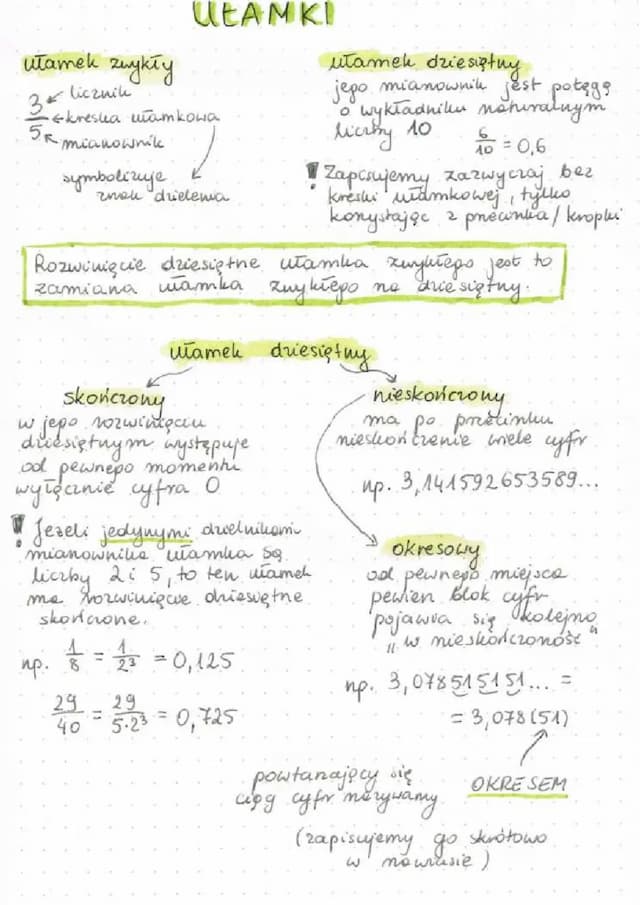 UŁAMKI
ułamek zwykły
3 licznik
— kreska ułamkowa
5 mianownik
symbolizuje
znak dzielenia
ułamek dziesiętny
jego mianownik jest potęgą
o wykładniku naturalnym
liczby 10
6/10 = 0,6
! Zapisujemy zazwyczaj bez
kreski ułamkowej, tylko
korzystając z przecinka/kropki
Rozwinięcie dziesiętne ułamka zwykłego jest to
zamiana ułamka zwykłego na dziesiętny.
ułamek dziesiętny
skończony
w jego rozwinięciu
dziesiętnym występuje
od pewnego momentu
wyłącznie cyfra 0
! Jeżeli jedynymi dzielnikami
mianownika ułamka są
liczby 2 i 5, to ten ułamek
ma rozwinięcie dziesiętne
skończone.
np. 1/8 = 1/2³ = 0,125
29/40 = 29/5·2³ = 0,725
nieskończony
ma po przecinku
nieskończenie wiele cyfr
np. 3,141592653589...
okresowy
od pewnego miejsca
pewien blok cyfr
pojawia się kolejno
„w nieskończoność"
np. 3,078515151... =
= 3,078(51)
powtarzający się
ciąg cyfr nazywamy OKRESEM
(zapisujemy go skrótowo
w nawiasie)